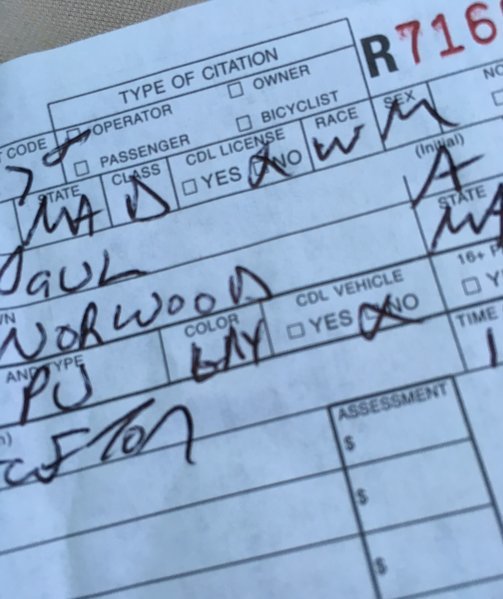 R716
TYPE OF CITATION
OPERATOR OWNER
CODE PASSENGER BICYCLIST
STATE CLASS CDL LICENSE RACE SEX NO
MA D YES NO W M
(Initial)
PAUL A
STATE
MA
NORWOOD
AND TYPE COLOR CDL VEHICLE 16+ P
PU GAY YES NO Y
TIME
ASSESSMENT
$
$
$